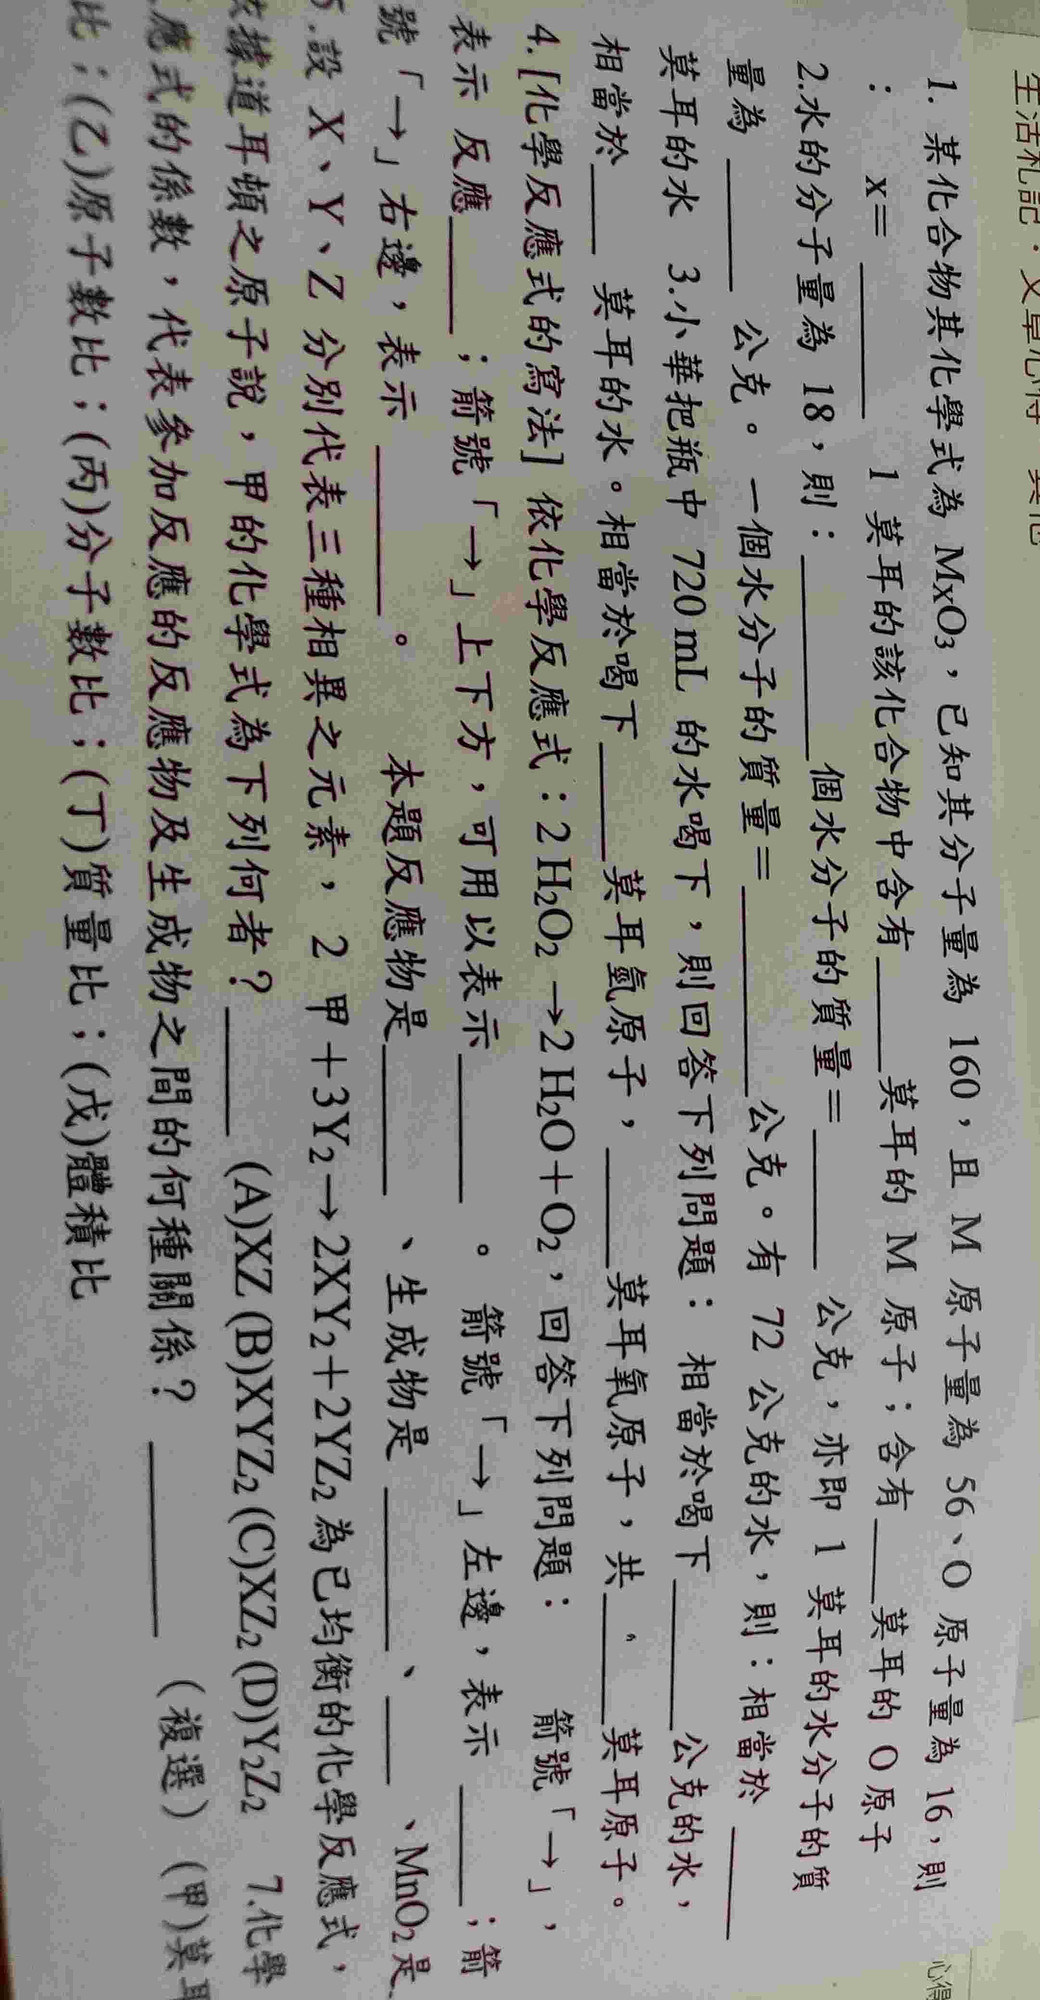 生活札記．文章心得
1. 某化合物其化學式為 MxO₃，已知其分子量為 160，且 M 原子量為 56、O 原子量為 16，則
： x= ＿＿＿ 1 莫耳的該化合物中含有＿＿＿莫耳的 M 原子；含有＿＿莫耳的 O 原子
2.水的分子量為 18，則：＿＿＿＿＿個水分子的質量=＿＿＿＿ 公克，亦即 1 莫耳的水分子的質
量為 ＿＿＿＿ 公克。一個水分子的質量=＿＿＿＿＿公克。有 72 公克的水，則：相當於 ＿＿＿
莫耳的水 3.小華把瓶中 720 mL 的水喝下，則回答下列問題： 相當於喝下＿＿＿＿公克的水，
相當於＿＿ 莫耳的水。相當於喝下＿＿＿莫耳氫原子，＿＿＿莫耳氧原子，共＿＿＿莫耳原子。
4. [化學反應式的寫法] 依化學反應式：2 H₂O₂ →2 H₂O＋O₂，回答下列問題： 箭號「→」，
表示 反應＿＿＿；箭號「→」上下方，可用以表示＿＿＿＿ 。 箭號「→」左邊，表示 ＿＿＿；箭
號「→」右邊，表示 ＿＿＿＿ 。 本題反應物是＿＿＿＿ 、生成物是 ＿＿＿＿ 、＿＿＿ 、MnO₂是
5.設 X、Y、Z 分別代表三種相異之元素，2 甲＋3Y₂→2XY₂＋2YZ₂為已均衡的化學反應式，
依據道耳頓之原子說，甲的化學式為下列何者？＿＿＿ (A)XZ (B)XYZ₂ (C)XZ₂ (D)Y₂Z₂ 7.化學
反應式的係數，代表參加反應的反應物及生成物之間的何種關係？ ＿＿＿＿＿ （複選）(甲)莫耳
比；(乙)原子數比；(丙)分子數比；(丁)質量比；(戊)體積比
心得